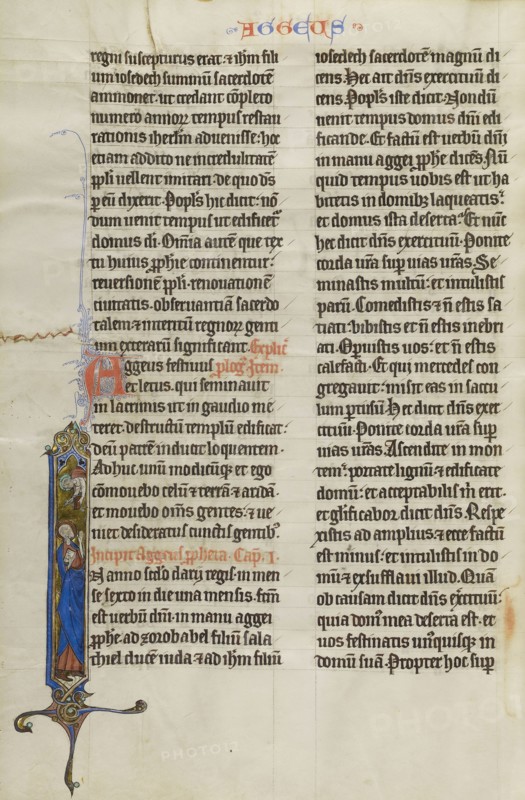 AGGEUS
regni suscepturus erat. ⁊ ihm fili
um iosedech summū sacerdotē
ammonet. ut credant cōpleto
numero annoꝝ tempus restau
rationis iherlm aduenisse. hoc
etiam addito ne incredulitatē
ppli uellent imitari. de quo ds̄
p eū dixerit. Popls̄ hic dicit. nō
dum uenit tempus ut edificet᷒
domus di. Om̄ia autē que tex
tu huius ꝓphie continentur.
reuersionē ppli. renouationē
ciuitatis. obseruantiā sacerdo
talem. ⁊ interitū regnoꝝ genti
um exteraꝝ significant. Explic̄
Aggeus festiuus plog. Item.
et letus. qui seminauit
in lacrimis ut in gaudio me
teret. destructū templū edificat.
deū patrē inducit loquentem.
Adhuc unū modicūq; et ego
cōmouebo celū ⁊ terrā ⁊ aridā.
et mouebo om̄s gentes. ⁊ ue
niet desideratus cunctis gentib;
Incipit Aggeus ꝓpheta. Cap. I.
In anno scdo darij regis. in men
se sexto in die una mensis. fctm̄
est uerbū dn̄i. in manu aggei
ꝓphe. ad zorobabel filiū sala
thiel ducē iuda. ⁊ ad ihm filiū
iosedech sacerdotē magnū di
cens. Hec ait dn̄s exercituū di
cens. Popls̄ iste dicit. Nondū
uenit tempus domus dn̄i edi
ficande. Et factū est uerbū dn̄i
in manu aggei ꝓphe dicēs. Nū
quid tempus uobis est ut ha
bitetis in domib; laqueatis.
et domus ista deserta. Et nūc
hec dicit dn̄s exercituū. Ponite
corda ur̄a sup uias ur̄as. Se
minastis multū. et intulistis
parū. Comedistis ⁊ n̄ estis sa
tiati. bibistis et n̄ estis inebri
ati. Opuistis uos. et n̄ estis
calefacti. Et qui mercedes con
gregauit. misit eas in saccu
lum ptusū. Hec dicit dn̄s exer
cituū. Ponite corda ur̄a sup
uias ur̄as. Ascendite in mon
tem. portate lignū ⁊ edificate
domū. et acceptabilis m̄ erit.
et glīficabor dicit dn̄s. Respe
xistis ad amplius. ⁊ ecce factū
est minus. et intulistis in do
mū. ⁊ exsufflaui illud. Quā
ob causam dicit dn̄s exrcituū.
quia dom᷒ mea deserta est. et
uos festinatis un᷒quisq; in
domū suā. Propter hoc sup